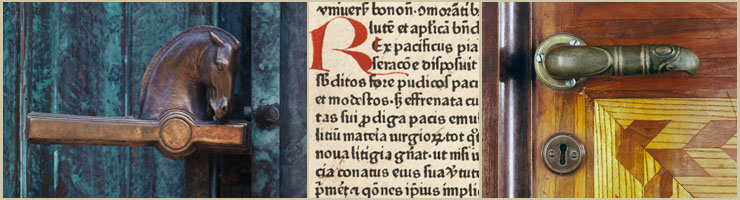 vniuers̃ bonoñ·ꝯmorãtib
lutẽ et apl̃icã bñd
Rex pacificus pia
seracõe disposuit
sb̃ditos fore pudicos paci
et modestos· sꝫ effrenata cu
tas sui ꝓdiga pacis emul
litiũ materia iurgioꝝ tot q̃
noua litigia gñat· ut nisi iu
cia conatus eius sua v̾tut
p̃met̾ et q̃ones ip̃ius impli